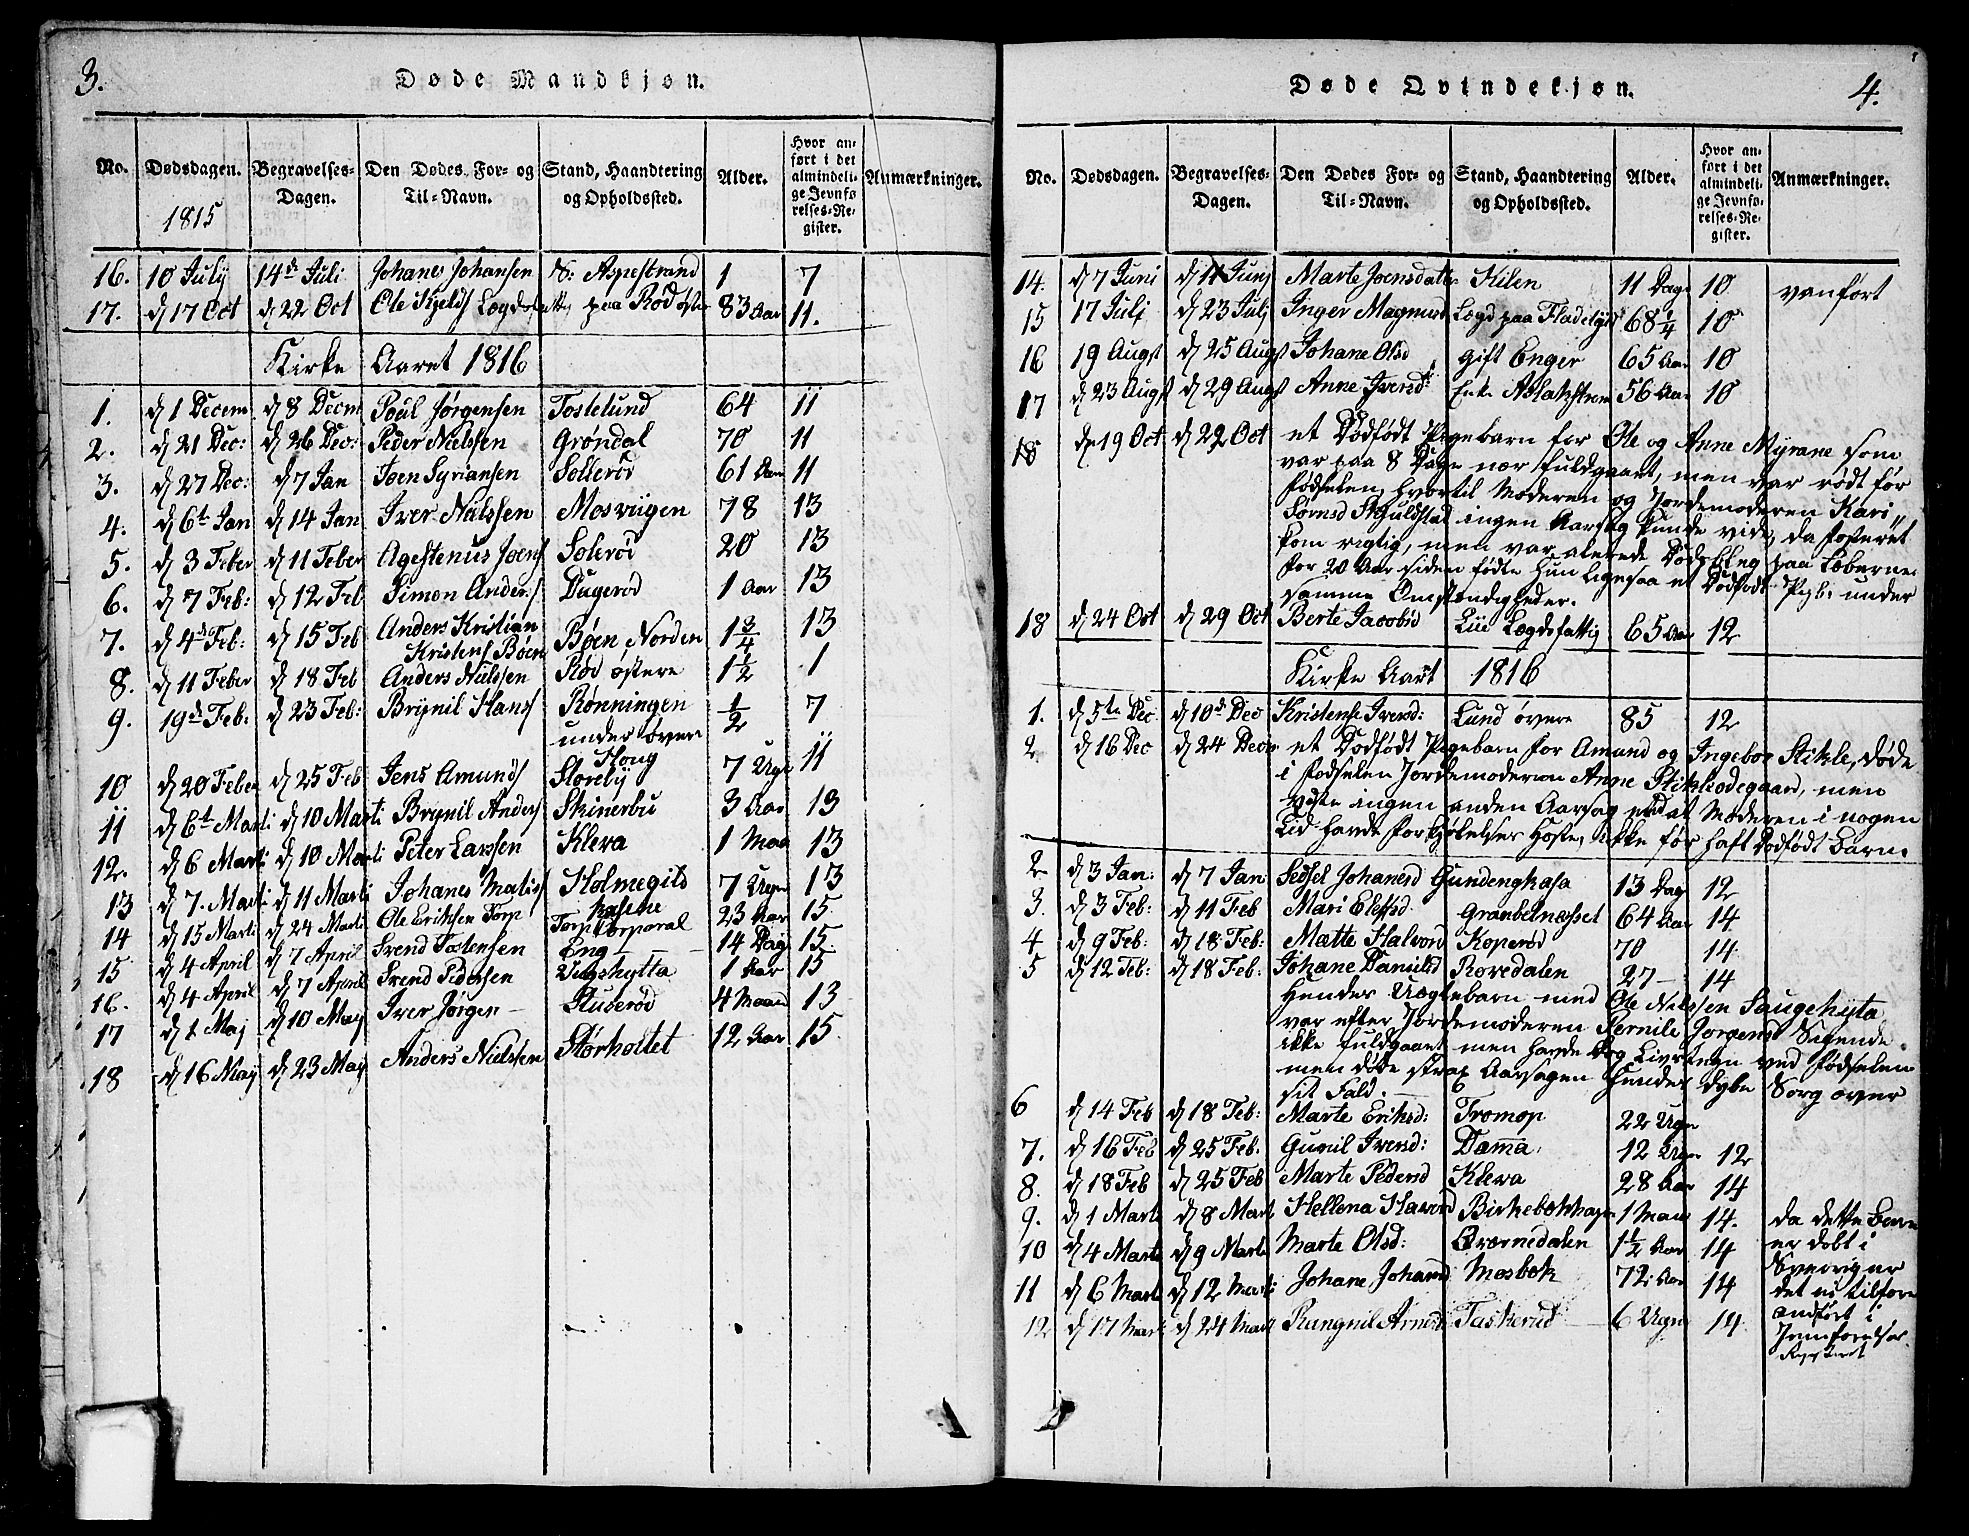 3.
Døde Mandkjøn.
No. Dødsdagen. Begravelses-Dagen. Den Dødes For- og Til-Navn. Stand, Haandtering og Opholdssted. Alder. Hvor anført i det almindelige Jevnførelses-Register. Anmærkninger.
1815
16. 10 July 14d Juli Johanes Johansen Aspestrand 1 7
17. d 17 Oct d 22 Oct Ole Kjelds Lægdsfattig paa Rød østre 83 Aar 11.
Kirke Aaret 1816
1. d 1 Decem d 8 Decm Poul Jørgensen Tostelund 64 11
2. d 21 Dec: d 26 Dec: Peder Nielssen Grøndal 70 11
3. d 27 Dec: d 7 Jan Joen Syriansen Sollerød 61 Aar 11
4. d 6t Jan d 14 Jan Iver Nilssen Mosviigen 78 13
5. d 3 Feber d 11 Feber Agestenus Joens Solerød 20 13
6. d 7 Feb: d 12 Feb Simon Anders Dugerød 1 Aar 13
7. d 4d Feb: d 15 Feb Anders Kristian Kristens Bøen Bøen Norden 1 3/4 13
8. d 11 Feber d 18 Feb Anders Nilssen Rød østere 1 1/2 1
9. 19d Feb: d 23 Feb: Brynil Hans Rønningen under øvre Houg 1/2 7
10 d 20 Feber d 25 Feb Jens Amunds Storeby 7 Uger 11
11 d 6t Marti d 10 Marti Brynil Anders Skinerbu 3 Aar 13
12. d 6 Marti d 10 Marti Peter Larssen Kleva 1 Maa 13
13 d 7 Marti d 11 Marti Johanes Matis Holmegils 7 Uger 13
14 d 15 Marti d 24 Marti Ole Eriksen Torp Torp Corporal 23 Aar 15.
15 d 4 April d 7 April Svend Tostensen Eng 14 Dag 15.
16. d 4 April d 7 April Svend Pedersen 1 Aar 15
17 d 2 Maj d 10 May Iver Jørgen Stuberød 4 Maan 13
18 d 16 May d 23 May Anders Nielssen Storholtet 12 Aar 15.
4.
Døde Qvindekjøn.
No. Dødsdagen. Begravelses-Dagen. Den Dødes For- og Til-Navn. Stand, Haandtering og Opholdssted. Alder. Hvor anført i det almindelige Jevnførelses-Register. Anmærkninger.
14. d 7 Juni d 11 Juni Marte Joensdatter Kilen 11 Dage 10 vanført
15 17 Juli d 23 Juli Inger Magnusd Lægd paa Fladebye 68 1/4 10
16 19 Augst d 25 Augst Johane Olsd gift Enger 65 Aar 10
17 d 23 Augst d 29 Augst Anne Iversd Enke Aslakstrøm 56 Aar 10
18 d 19 Oct d 22 Oct et Dødfødt Pigebarn for Ole og Anne Myrane som
var paa 8 Dage nær fuldgaaet, men var dødt før
Fødselen, hvortil Moderen og Jordemoderen Kari
ingen Aarsag kunde vide, da Fosteret
kom rigtig, men var alerede
for 20 Aar siden fødte hun ligesaa et Dødfødt Pigb: under
samme Omstændigheder.
18 d 24 Oct d 29 Oct Berte Jacobsd Lie Lægdsfattig 65 Aar 12
Kirke Aart 1816
1. d 5te Dec. d 10d Dec Kristense Iversd: Lund øvere 85 12
2. d 16 Dec d 24 Decm et Dødfødt Pigebarn for Amund og Ingebor Stikle, døde
i Fødselen Jordemoderen Anne Stikleødegaard, men
viste ingen anden Aarsag end at Moderen i nogen
Tid havde Forkjølelses Hoste, ikke før haft Dødfødt Barn.
2 d 3 Jan: d 7 Jan Sedsel Johanesd Gundengkasa 13 Dag 12
3. d 3 Feb: d 11 Feb Mari Elefsd Granbelnesset 64 Aar 14
4 d 9 Feb: d 18 Feb: Matte Halvord Koperød 70 14
5 d 12 Feb: d 18 Feb: Johane Danielsd Rovedalen 27 14
Hendes Uægtebarn med Ole Nilssen Saugehyta
var efter Jordemoderen Pernile Jorgensd Sigende
ikke fuldgaaet men havde dog Livstegn ved Fødselen
men døde strax Aarsagen hendes dybe Sorg over
sit Fald.
6 d 14 Feb d 18 Feb: Marte Eriksd: Tromop 22 Uger
7. d 16 Feb d 25 Feb. Gunil Iversd: Damma 12 Uger 12
8. d 18 Feb d 25 Feb Marte Pedersd Kleva 28 Aar 14
9. d 1 Marti d 8 Mart Hellena Haversd Birkebekhagen 1 Maan 14. da dette Barn
10 d 4 Marti d 9 Marti Marte Olsd: Qværnedalen 1 1/2 Aar 14 er døbt i
11 d 6 Marti d 12 Marti Johane Johansd Mosbek 72 Aar 14 Sverrig er
12 d 17 Mart d 24 Mart Rangnil Arnesd Taskerud 6 Uger 14 det ei tilforn
anført i
Jevnførelses
Registeret